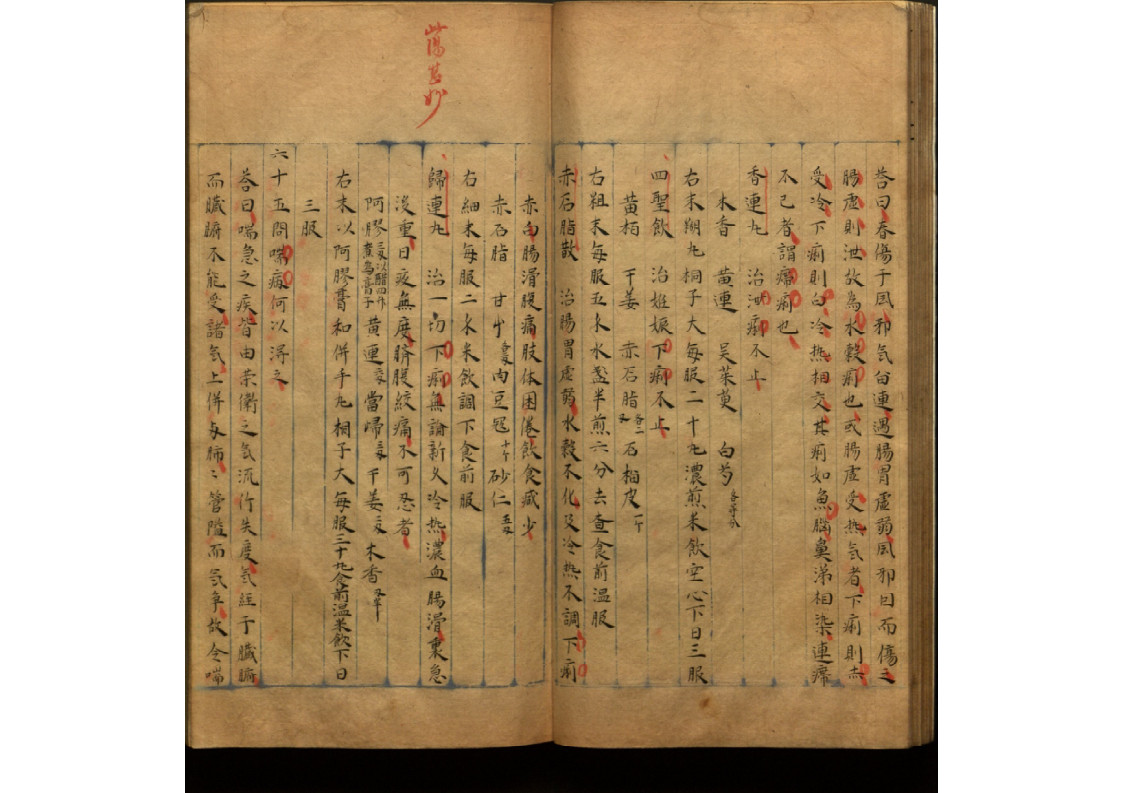 答曰春傷于風邪气留連遇腸胃虛弱風邪因而傷之
腸虛則泄故為水穀痢也或腸虛受熱气者下痢則赤
受冷下痢則白冷热相交其痢如魚腦鼻涕相染連滯
不已者謂滯痢也
香連丸 治泄痢不止
木香 黃連 吳茱萸 白芍各等分
右末糊丸桐子大每服二十丸濃煎米飲空心下日三服
四聖飲 治姙娠下痢不止
黃栢 干姜 赤石脂各二又 石榴皮一个
右粗末每服五水水盞半煎六分去查食前温服
赤石脂散 治腸胃虛弱水穀不化及冷热不調下痢
赤白腸滑腹痛肢体困倦飲食减少
赤石脂 甘艸 肉豆冦十个 砂仁
右細末每服二水米飲調下食前服
歸連丸 治一切下痢無論新久冷热濃血腸滑裏急
後重日夜無度臍腹絞痛不可忍者
阿膠以醋四升煮為膏子 黃連 當歸 干姜 木香又半
右末以阿膠膏和併手丸桐子大每服三十丸食前温米飲下日
三服
六十五問喘病何以淂之
答曰喘急之疾皆由荣衛之气流行失度气経于臟腑
而臟腑不能受諸气上併与肺肺管隘而气争故令喘
甚妙